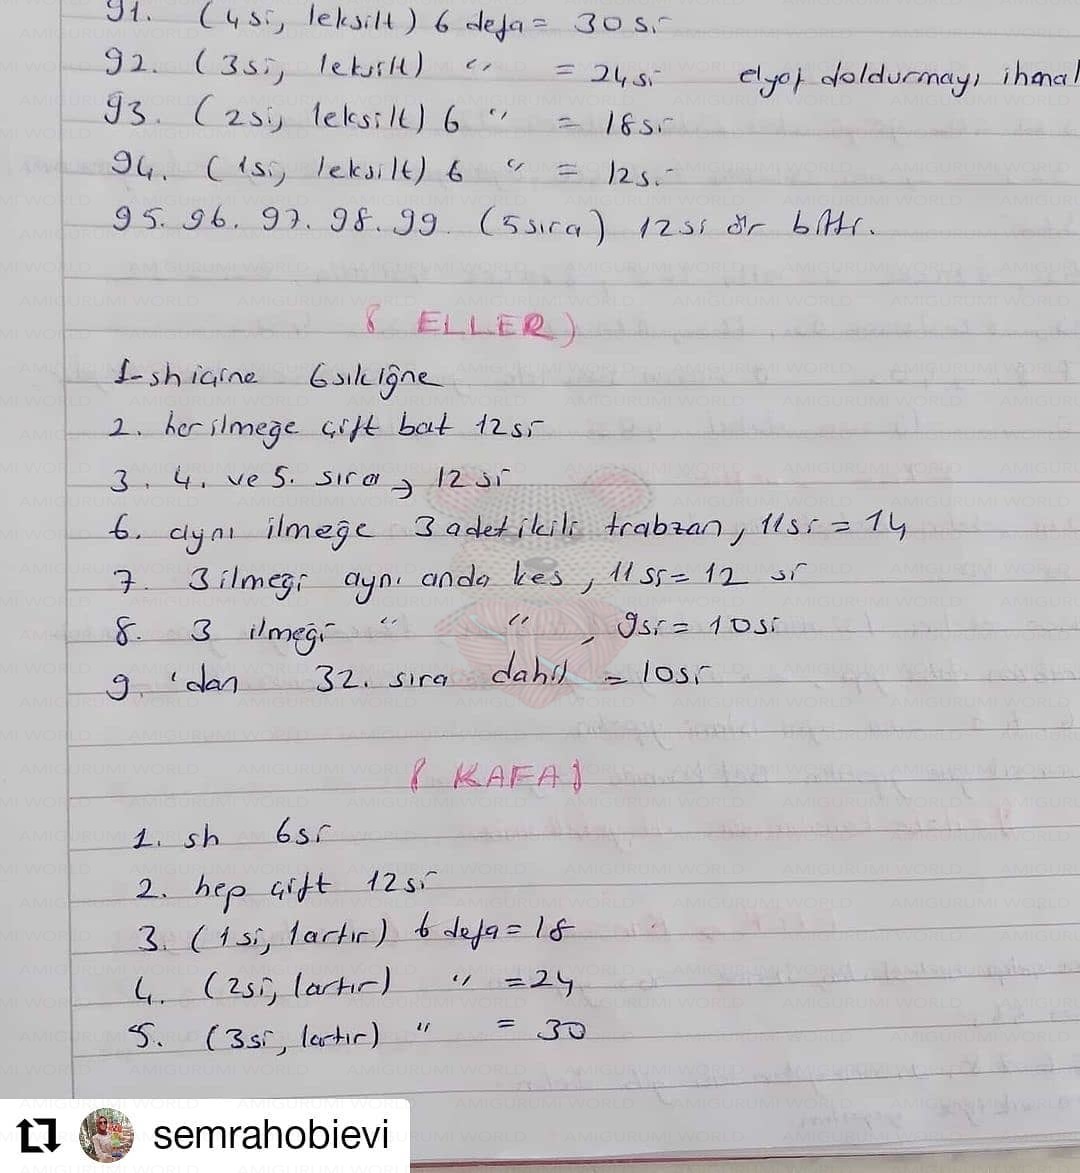 91. (4si, 1eksilt) 6 defa = 30si
92. (3si, 1eksilt) " = 24si elyaf doldurmayı ihmal
93. (2si, 1eksilt) 6 " = 18si
94. (1si, 1eksilt) 6 " = 12si
95. 96. 97. 98. 99. (5 sıra) 12si ör bitir.
( ELLER )
1- sh içine 6 sık iğne
2. her ilmeğe çift bat 12si
3. 4. ve 5. sıra → 12 si
6. aynı ilmeğe 3 adet ikili trabzan, 11si = 14
7. 3 ilmeği aynı anda kes, 11 si = 12 si
8. 3 ilmeği " " , 9si = 10si
9. 'dan 32. sıra dahil = 10si
( KAFA )
1. sh 6si
2. hep çift 12si
3. (1si, 1artır) 6 defa = 18
4. (2si, 1artır) " = 24
5. (3si, 1artır) " = 30
AMIGURUMI WORLD
semrahobievi